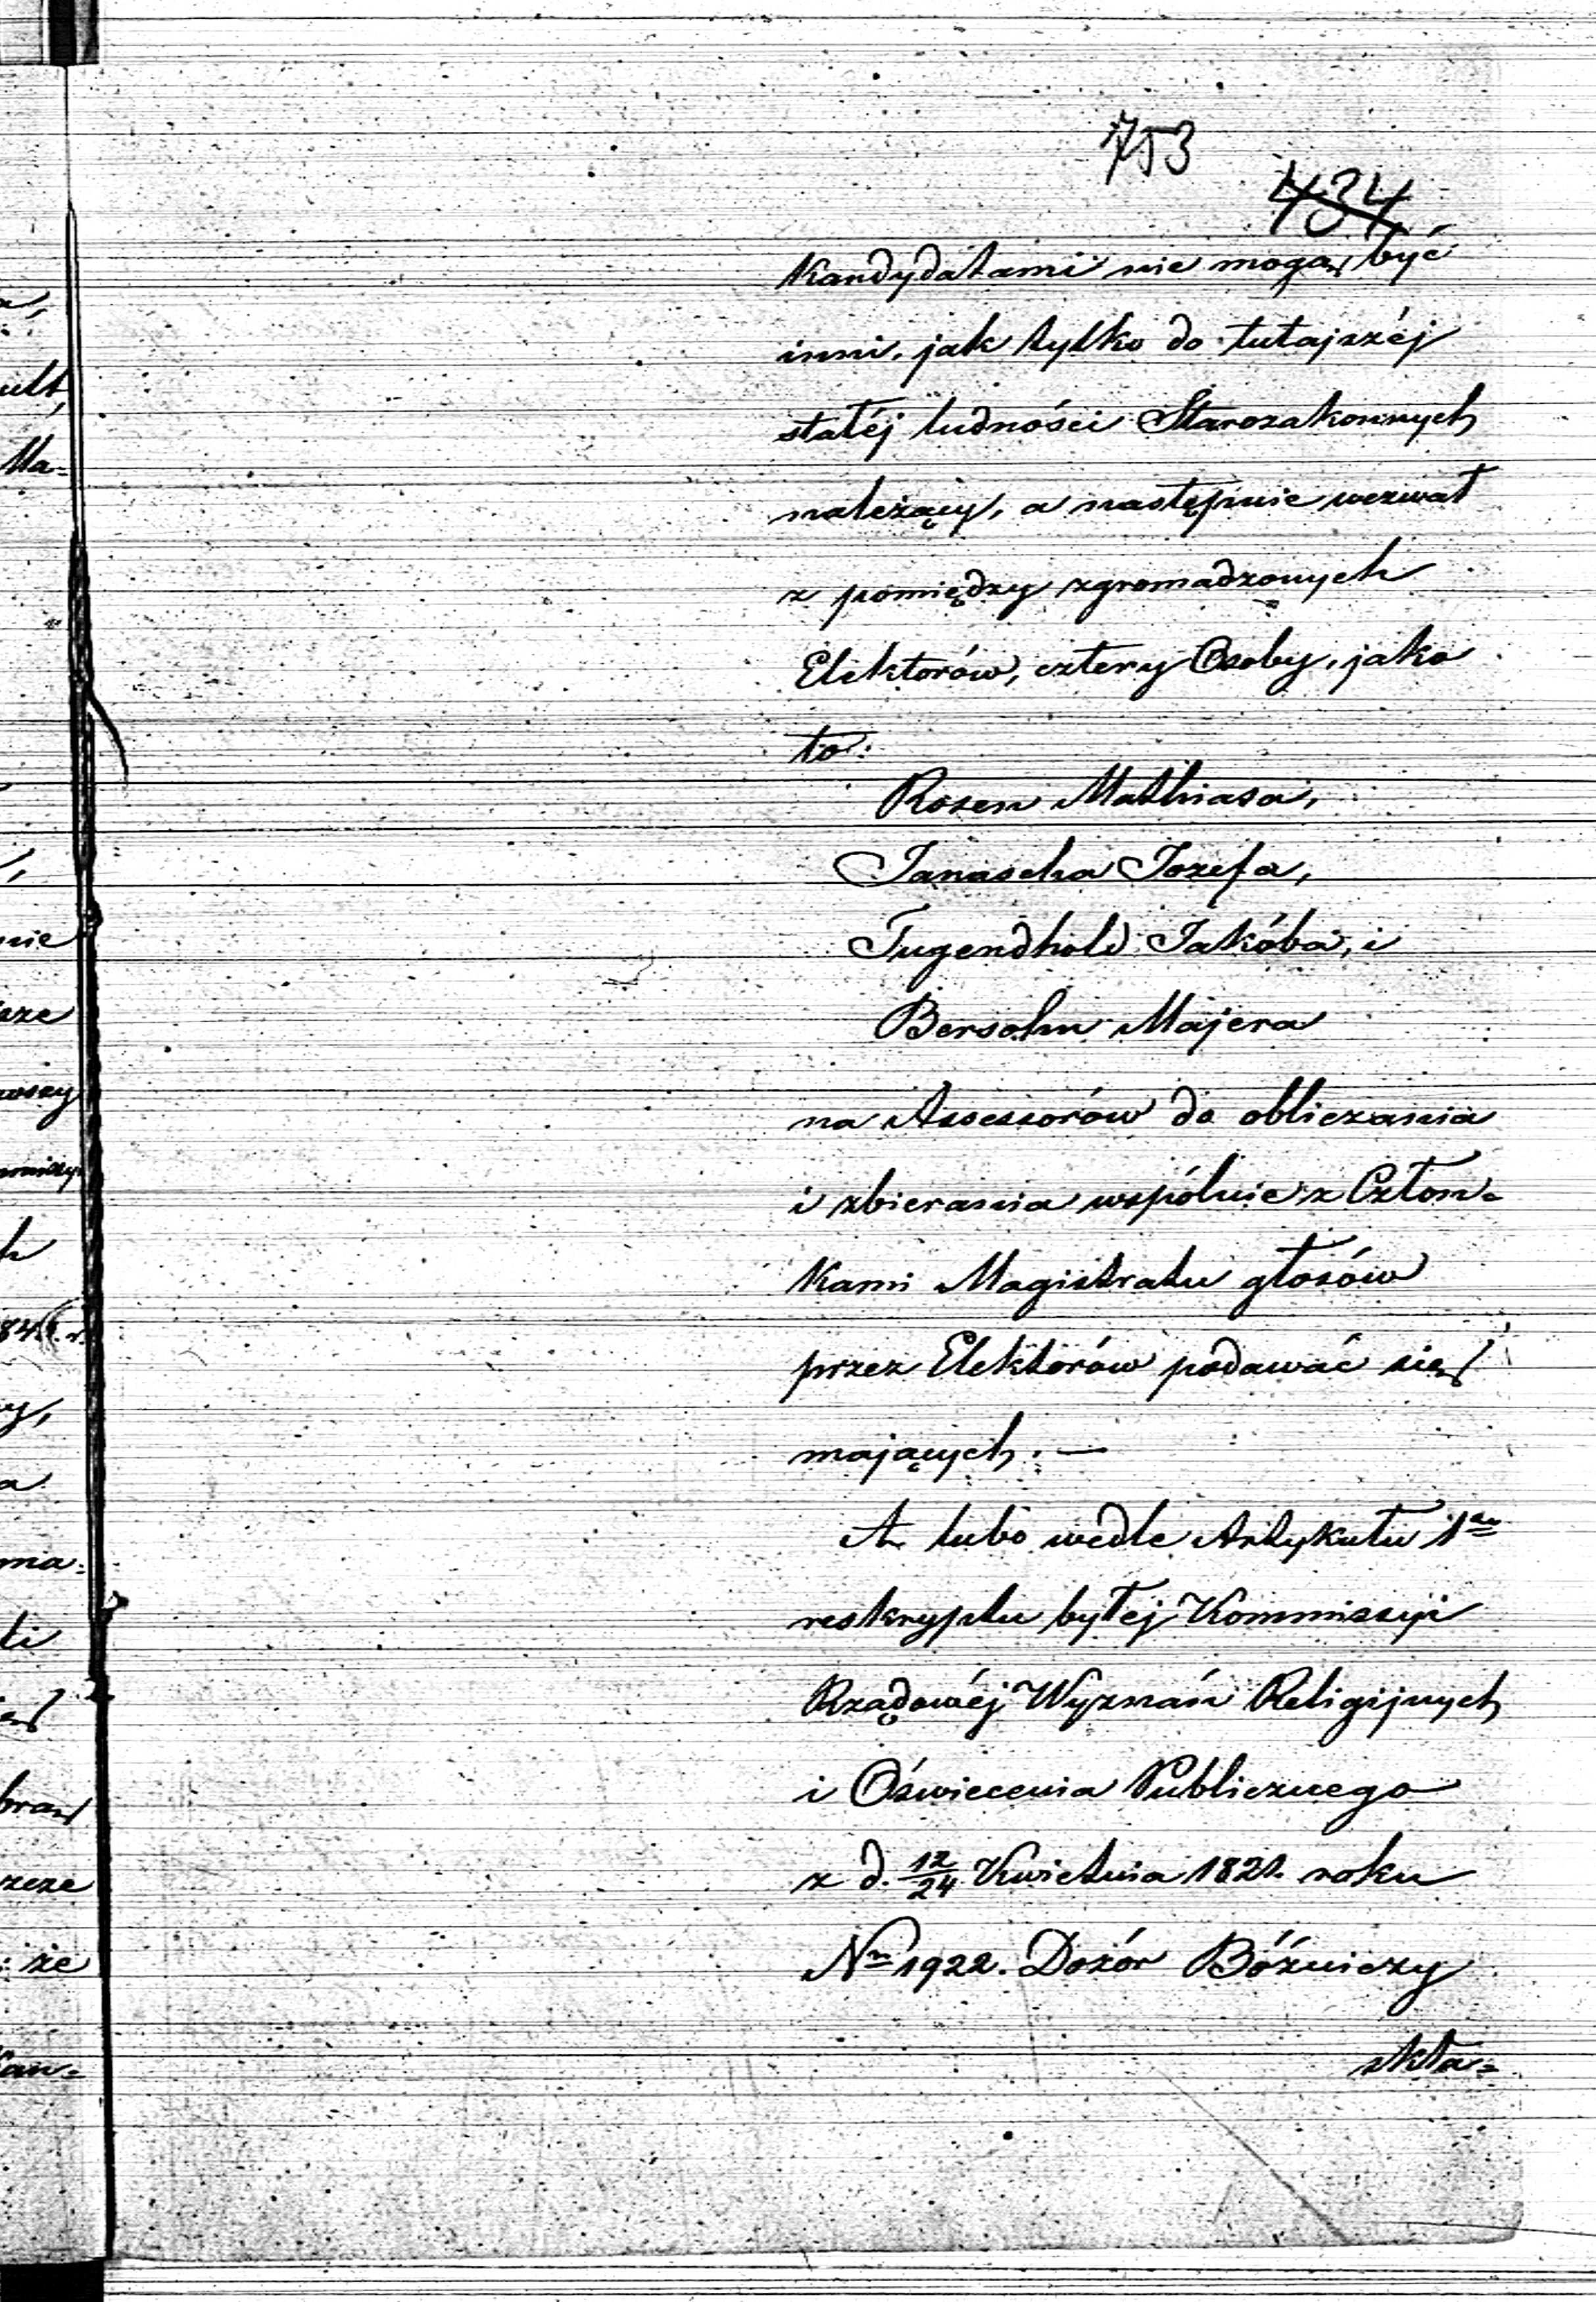 753
434
Kandydatami nie mogą być
inni, jak tylko do tutajszéj
stałéj ludności Starozakonnych
należący, a następnie wezwał
z pomiędzy zgromadzonych
Elektorów, cztery Osoby, jako
to:
Rosen Mathiasa,
Janascha Jozefa,
Tugendhold Jakóba, i
Bersohn Majera
na Assessorów do obliczania
i zbierania wspólnie z Człon=
kami Magistratu głosów
przez Elektorów podawać się
mających. —
A lubo wedle Artykułu 1go
reskryptu byłej Kommissyi
Rządowéj Wyznań Religijnych
i Oświecenia Publicznego
z d. 12/24 Kwietnia 1821. roku
Nr 1922. Dozór Bóżniczy
skła=